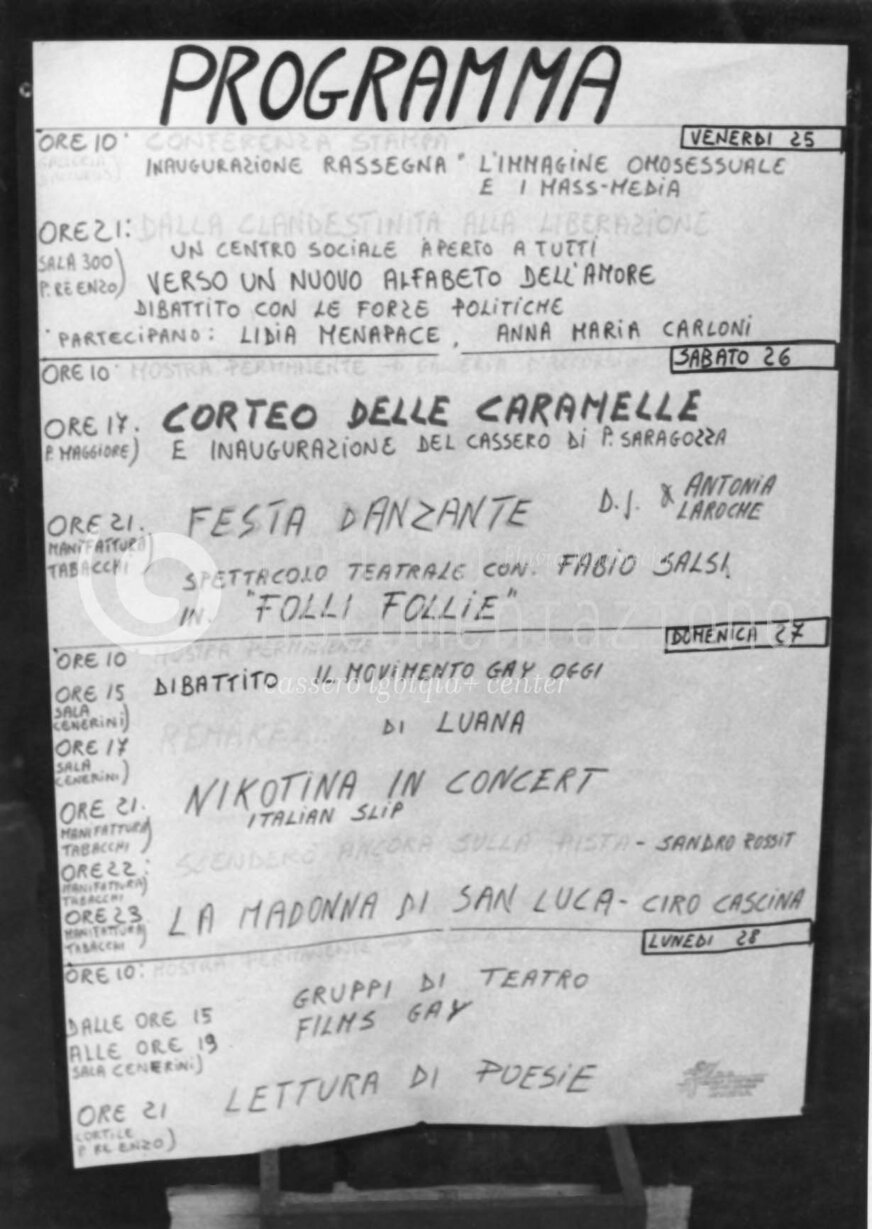 PROGRAMMA
VENERDI 25
ORE 10· CONFERENZA STAMPA
INAUGURAZIONE RASSEGNA "L'IMMAGINE OMOSESSUALE
E I MASS-MEDIA
ORE 21: DALLA CLANDESTINITA ALLA LIBERAZIONE
SALA 300)
P. RE ENZO)
UN CENTRO SOCIALE APERTO A TUTTI
VERSO UN NUOVO ALFABETO DELL'AMORE
DIBATTITO CON LE FORZE POLITICHE
PARTECIPANO: LIDIA MENAPACE, ANNA MARIA CARLONI
SABATO 26
ORE 10· MOSTRA PERMANENTE → GALLERIA
ORE 17. CORTEO DELLE CARAMELLE
P. MAGGIORE) E INAUGURAZIONE DEL CASSERO DI P. SARAGOZZA
ORE 21. FESTA DANZANTE D.J. & ANTONIA
LAROCHE
MANIFATTURA)
TABACCHI
SPETTACOLO TEATRALE CON. FABIO SALSI
IN. "FOLLI FOLLIE"
DOMENICA 27
ORE 10 MOSTRA PERMANENTE
ORE 15 DIBATTITO IL MOVIMENTO GAY OGGI
SALA
CENERINI)
ORE 17 REMAKE... DI LUANA
SALA
CENERINI)
ORE 21. NIKOTINA IN CONCERT
ITALIAN SLIP
MANIFATTURA)
TABACCHI
ORE 22: SCENDERÒ ANCORA SULLA PISTA - SANDRO
MANIFATTURA)
TABACCHI
ORE 23 LA MADONNA DI SAN LUCA - CIRO CASCINA
MANIFATTURA)
TABACCHI
LUNEDI 28
ORE 10: MOSTRA PERMANENTE →
DALLE ORE 15
ALLE ORE 19
SALA CENERINI)
GRUPPI DI TEATRO
FILMS GAY
ORE 21 LETTURA DI POESIE
CORTILE
P. RE ENZO)
©
cassero lgbtqia+ center